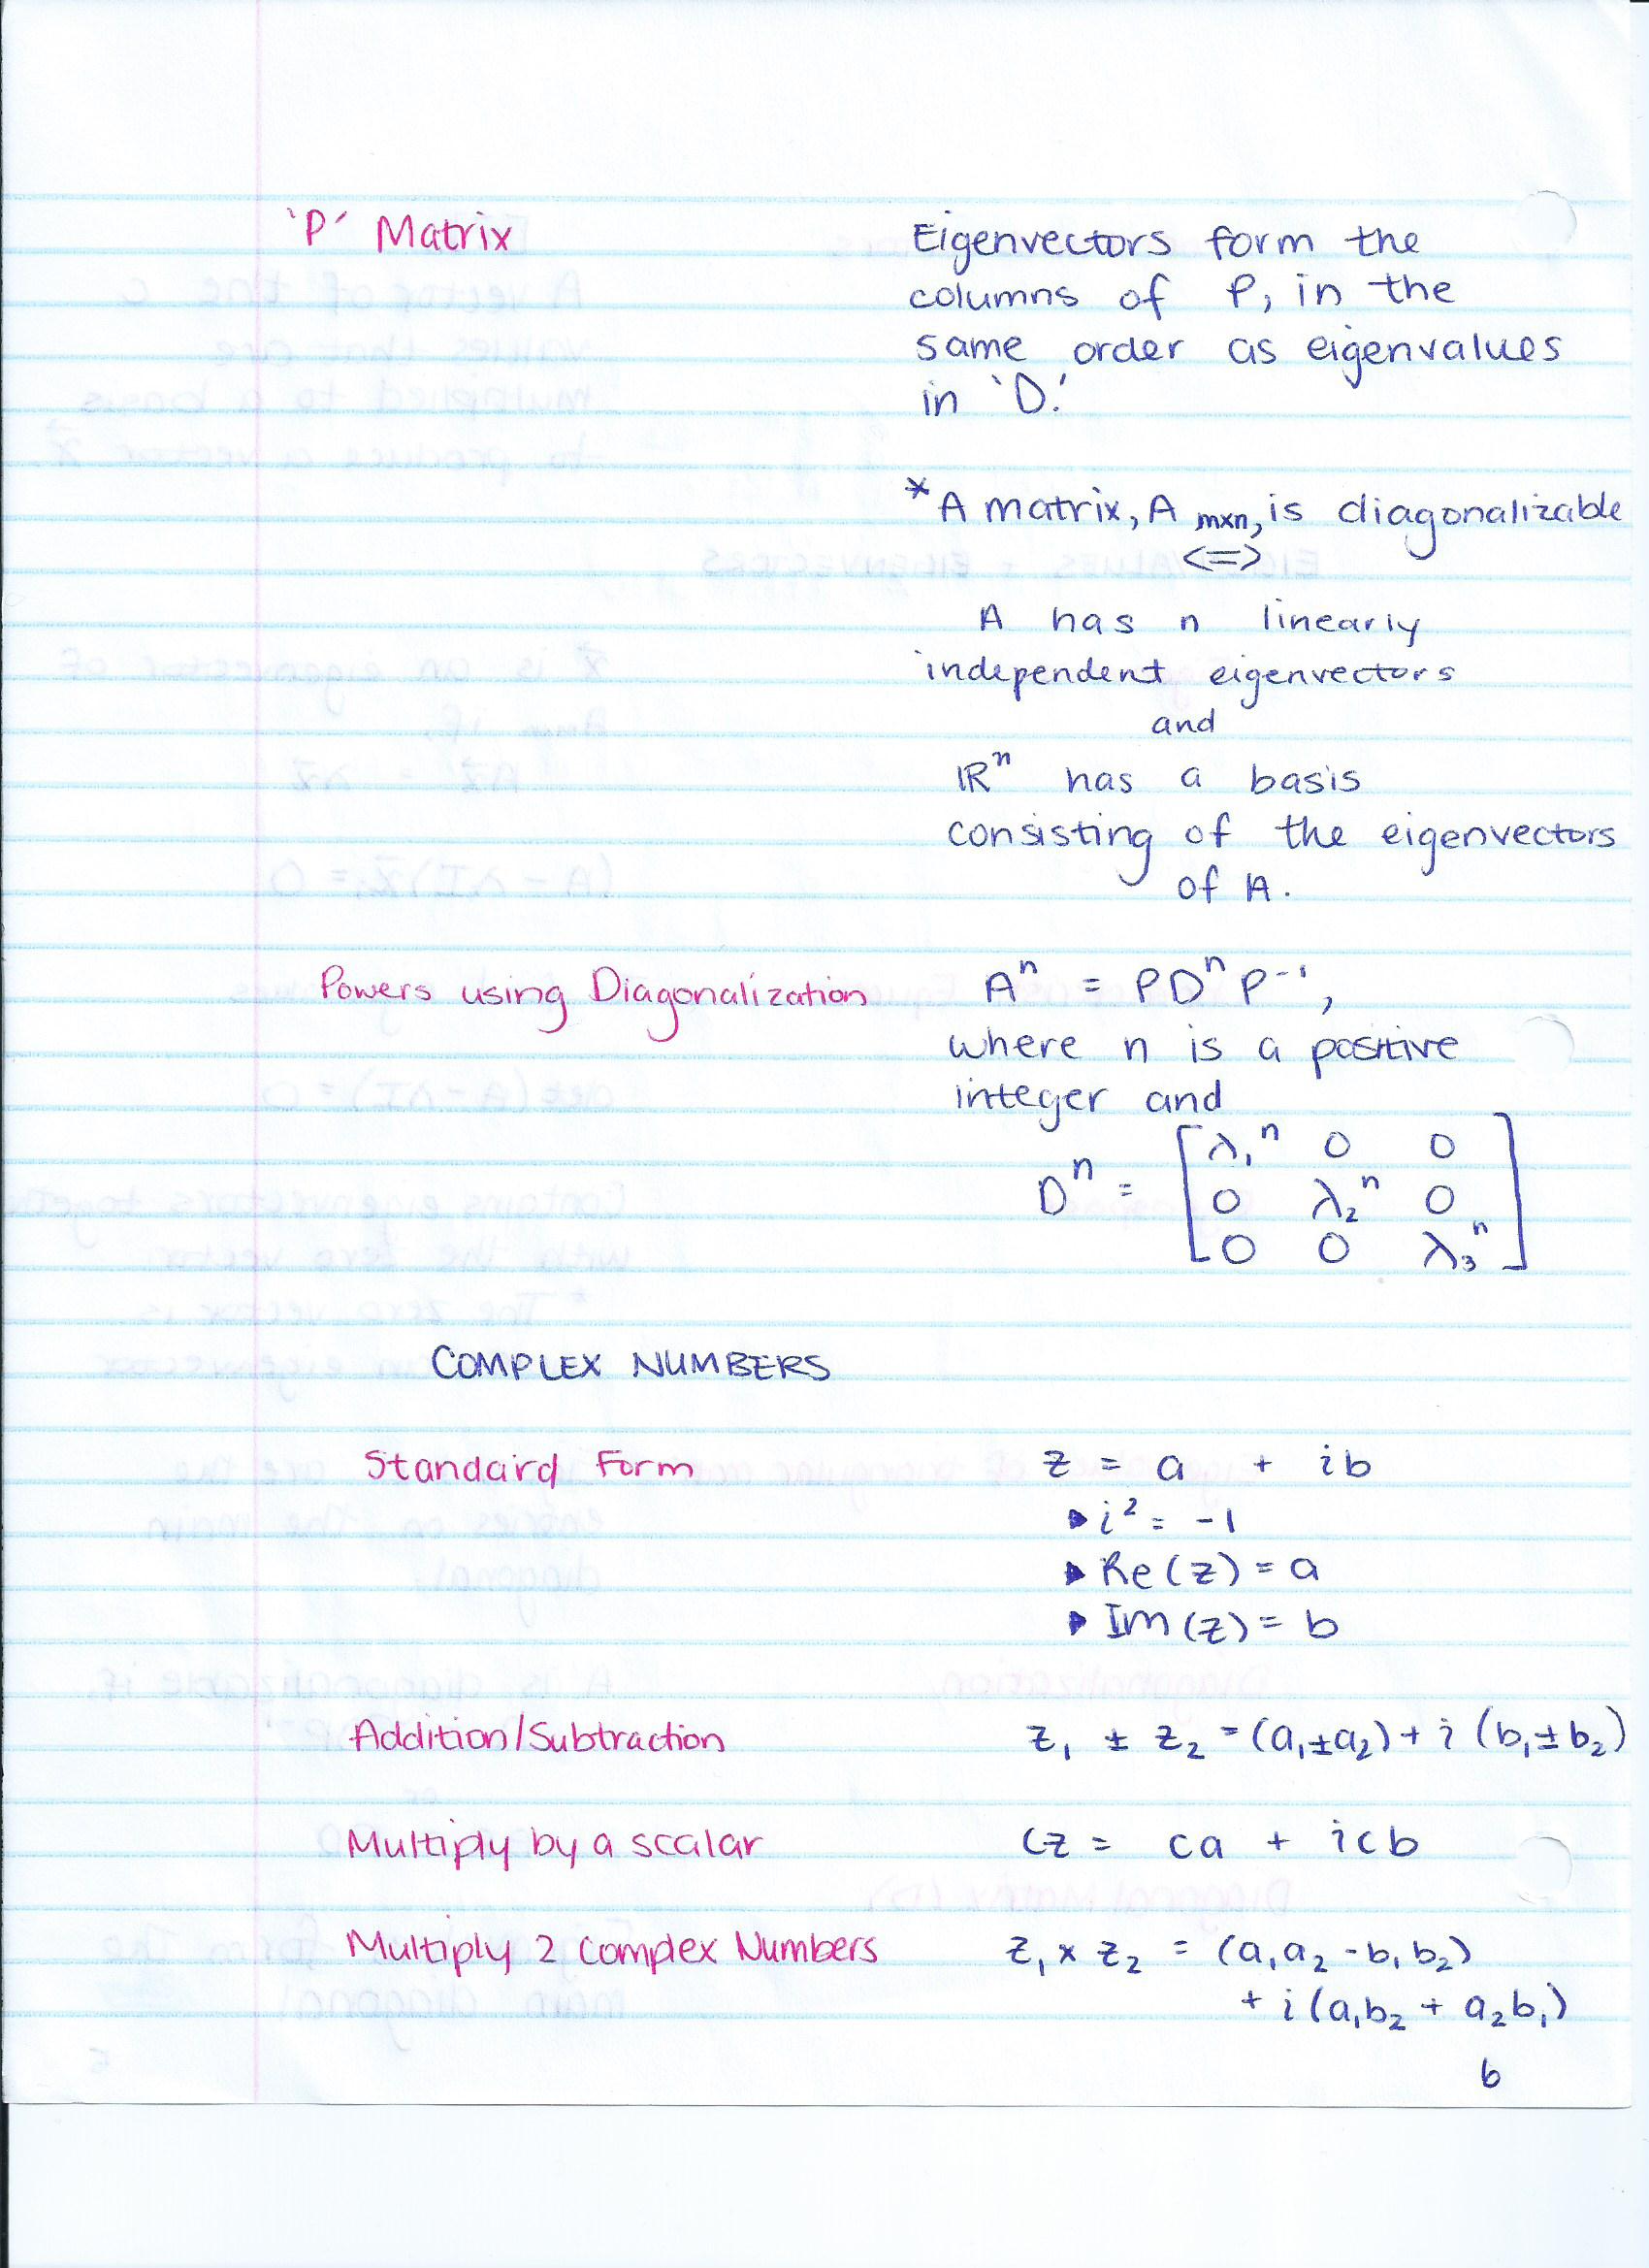 'P' Matrix Eigenvectors form the
columns of P, in the
same order as eigenvalues
in 'D.'
*A matrix, A mxn, is diagonalizable
<=>
A has n linearly
independent eigenvectors
and
ℝⁿ has a basis
consisting of the eigenvectors
of A.
Powers using Diagonalization Aⁿ = PDⁿP⁻¹,
where n is a positive
integer and
Dⁿ = [λ₁ⁿ 0 0
0 λ₂ⁿ 0
0 0 λ₃ⁿ]
COMPLEX NUMBERS
Standard Form z = a + ib
▸ i² = -1
▸ Re(z) = a
▸ Im(z) = b
Addition/Subtraction z₁ ± z₂ = (a₁±a₂) + i (b₁±b₂)
Multiply by a scalar cz = ca + icb
Multiply 2 Complex Numbers z₁ x z₂ = (a₁a₂ - b₁b₂)
+ i(a₁b₂ + a₂b₁)
6